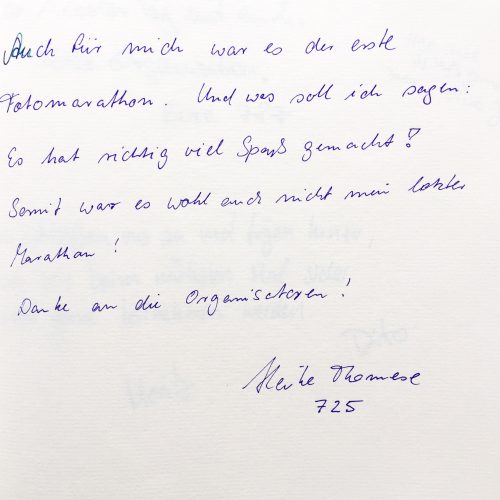 Auch für mich war es der erste
Fotomarathon. Und was soll ich sagen:
Es hat richtig viel Spaß gemacht!
Somit war es wohl auch nicht mein letzter
Marathon!
Danke an die Organisatoren!
Heike Thomese
725